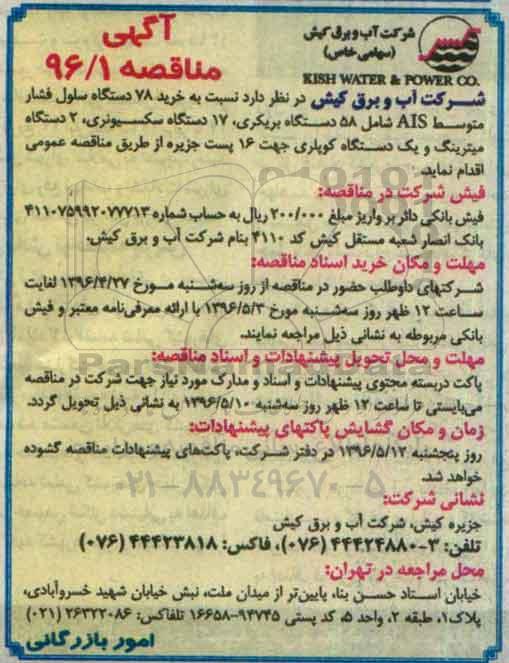 آگهی
مناقصه ۹۶/۱
شرکت آب و برق کیش
(سهامی خاص)
KISH WATER & POWER CO.
شرکت آب و برق کیش در نظر دارد نسبت به خرید ۷۸ دستگاه سلول فشار
متوسط AIS شامل ۵۸ دستگاه بریکری، ۱۷ دستگاه سکسیونری، ۲ دستگاه
میترینگ و یک دستگاه کوپلری جهت ۱۶ پست جزیره از طریق مناقصه عمومی
اقدام نماید.
فیش شرکت در مناقصه:
فیش بانکی دائر بر واریز مبلغ ۲۰۰/۰۰۰ ریال به حساب شماره ۴۱۱۰۷۵۹۹۲۰۷۷۷۱۳
بانک انصار شعبه مستقل کیش کد ۴۱۱۰ بنام شرکت آب و برق کیش.
مهلت و مکان خرید اسناد مناقصه:
شرکتهای داوطلب حضور در مناقصه از روز سه‌شنبه مورخ ۱۳۹۶/۴/۲۷ لغایت
ساعت ۱۲ ظهر روز سه‌شنبه مورخ ۱۳۹۶/۵/۳ با ارائه معرفی‌نامه معتبر و فیش
بانکی مربوطه به نشانی ذیل مراجعه نمایند.
مهلت و محل تحویل پیشنهادات و اسناد مناقصه:
پاکت دربسته محتوی پیشنهادات و اسناد و مدارک مورد نیاز جهت شرکت در مناقصه
می‌بایستی تا ساعت ۱۲ ظهر روز سه‌شنبه ۱۳۹۶/۵/۱۰ به نشانی ذیل تحویل گردد.
زمان و مکان گشایش پاکتهای پیشنهادات:
روز پنجشنبه ۱۳۹۶/۵/۱۲ در دفتر شرکت، پاکت‌های پیشنهادات مناقصه گشوده
خواهد شد.
۰۲۱-۸۸۳۴۹۶۷۰-۵
نشانی شرکت:
جزیره کیش، شرکت آب و برق کیش
تلفن: ۳-۴۴۴۲۴۸۸۰ (۰۷۶)، فاکس: ۴۴۴۲۳۸۱۸ (۰۷۶)
محل مراجعه در تهران:
خیابان استاد حسن بنا، پایین‌تر از میدان ملت، نبش خیابان شهید خسروآبادی،
پلاک۱، طبقه ۲، واحد ۵، کد پستی ۹۴۷۴۵-۱۶۶۵۸ تلفاکس: ۲۶۳۲۲۰۸۶ (۰۲۱)
امور بازرگانی